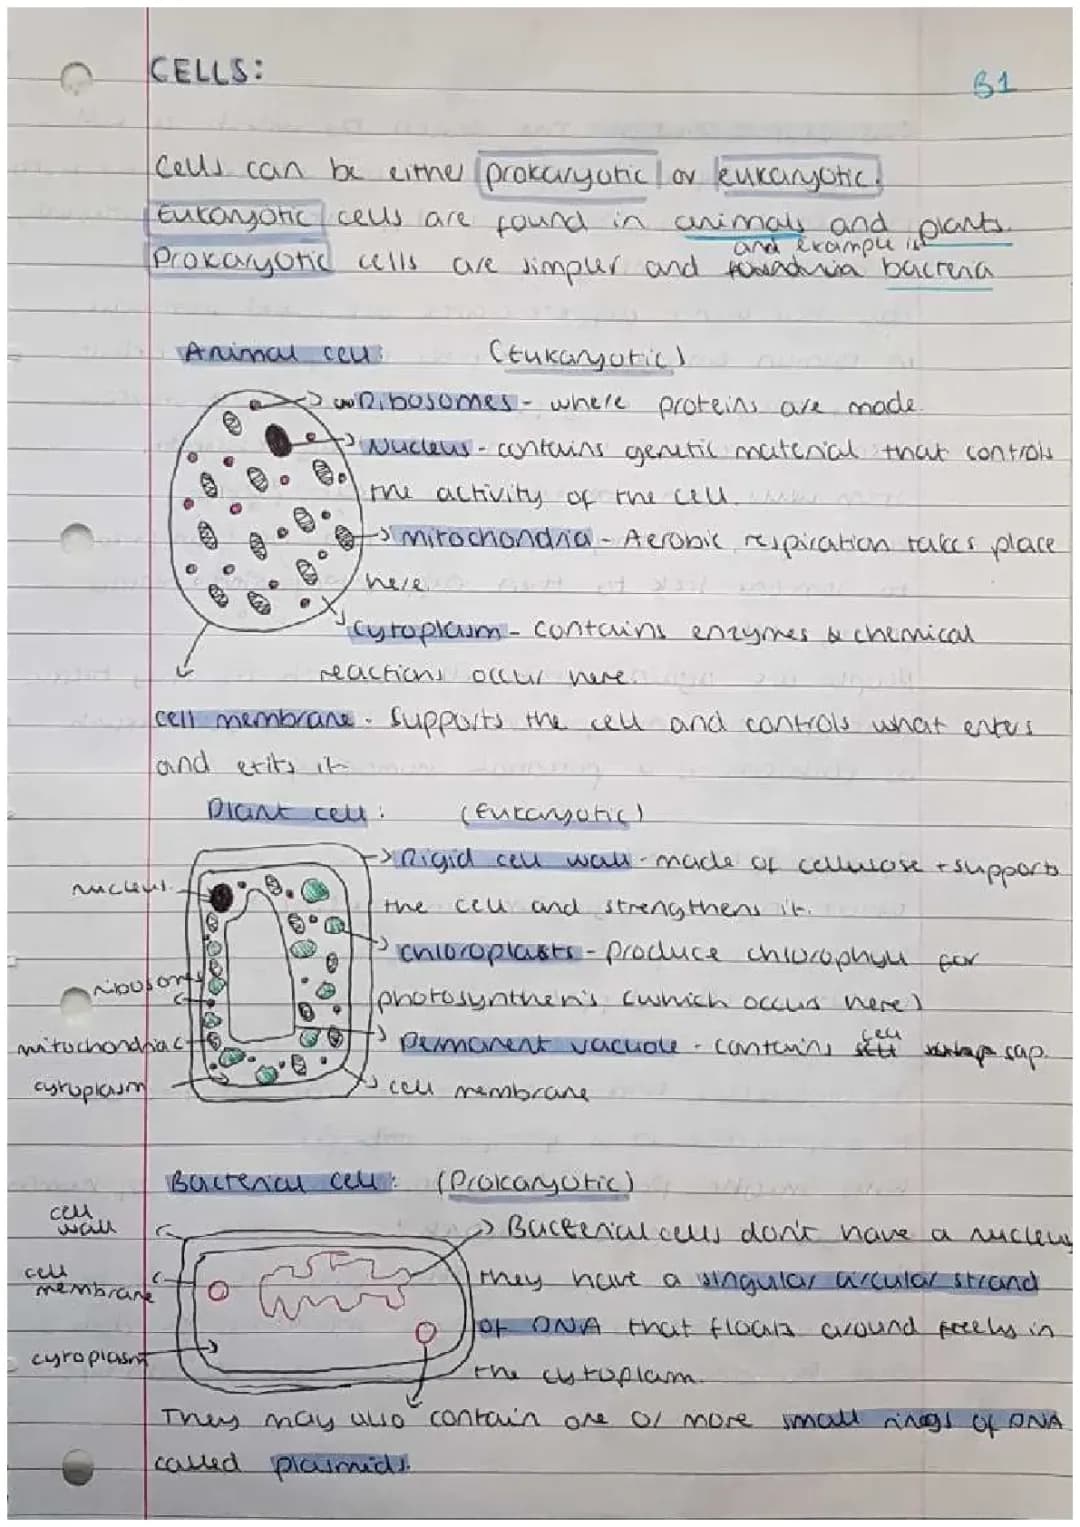 CELLS:
B1
Cells can be either prokaryotic or eukaryotic.
Eukaryotic cells are found in animals and plants.
and example is
Prokaryotic cells are simpler and bacteria
Animal cell: (Eukaryotic)
Ribosomes - where proteins are made.
Nucleus - contains genetic material that controls
the activity of the cell.
mitochondria - Aerobic respiration takes place
here
cytoplasm - contains enzymes & chemical
reactions occur here.
cell membrane - supports the cell and controls what enters
and exits it
Plant cell: (Eukaryotic)
Rigid cell wall - made of cellulose + supports
nucleus
the cell and strengthens it.
chloroplasts - produce chlorophyll for
ribosomes
photosynthesis (which occurs here)
mitochondria
permanent vacuole - contains cell sap.
cytoplasm
cell membrane
Bacterial cell: (Prokaryotic)
cell
wall
Bacterial cells don't have a nucleus
cell
membrane
they have a singular circular strand
of DNA that floats around freely in
cytoplasm
the cytoplasm.
They may also contain one or more small rings of DNA
called plasmids.